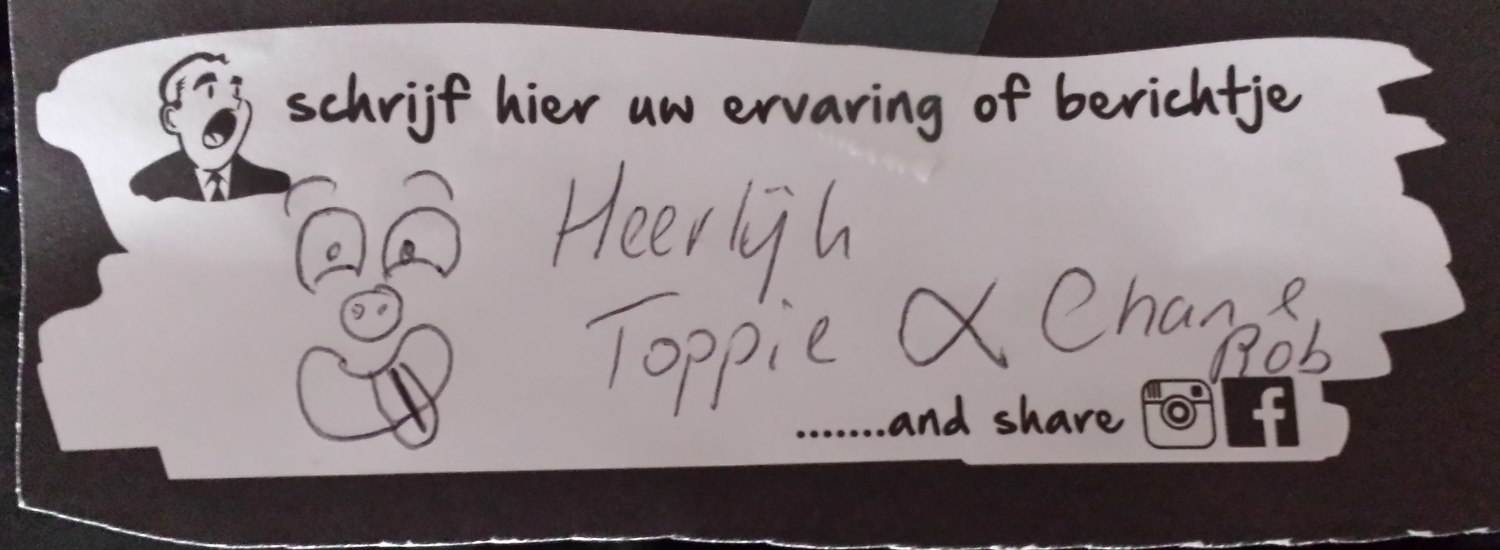 schrijf hier uw ervaring of berichtje
Heerlijk
Toppie
Rob
.......and share